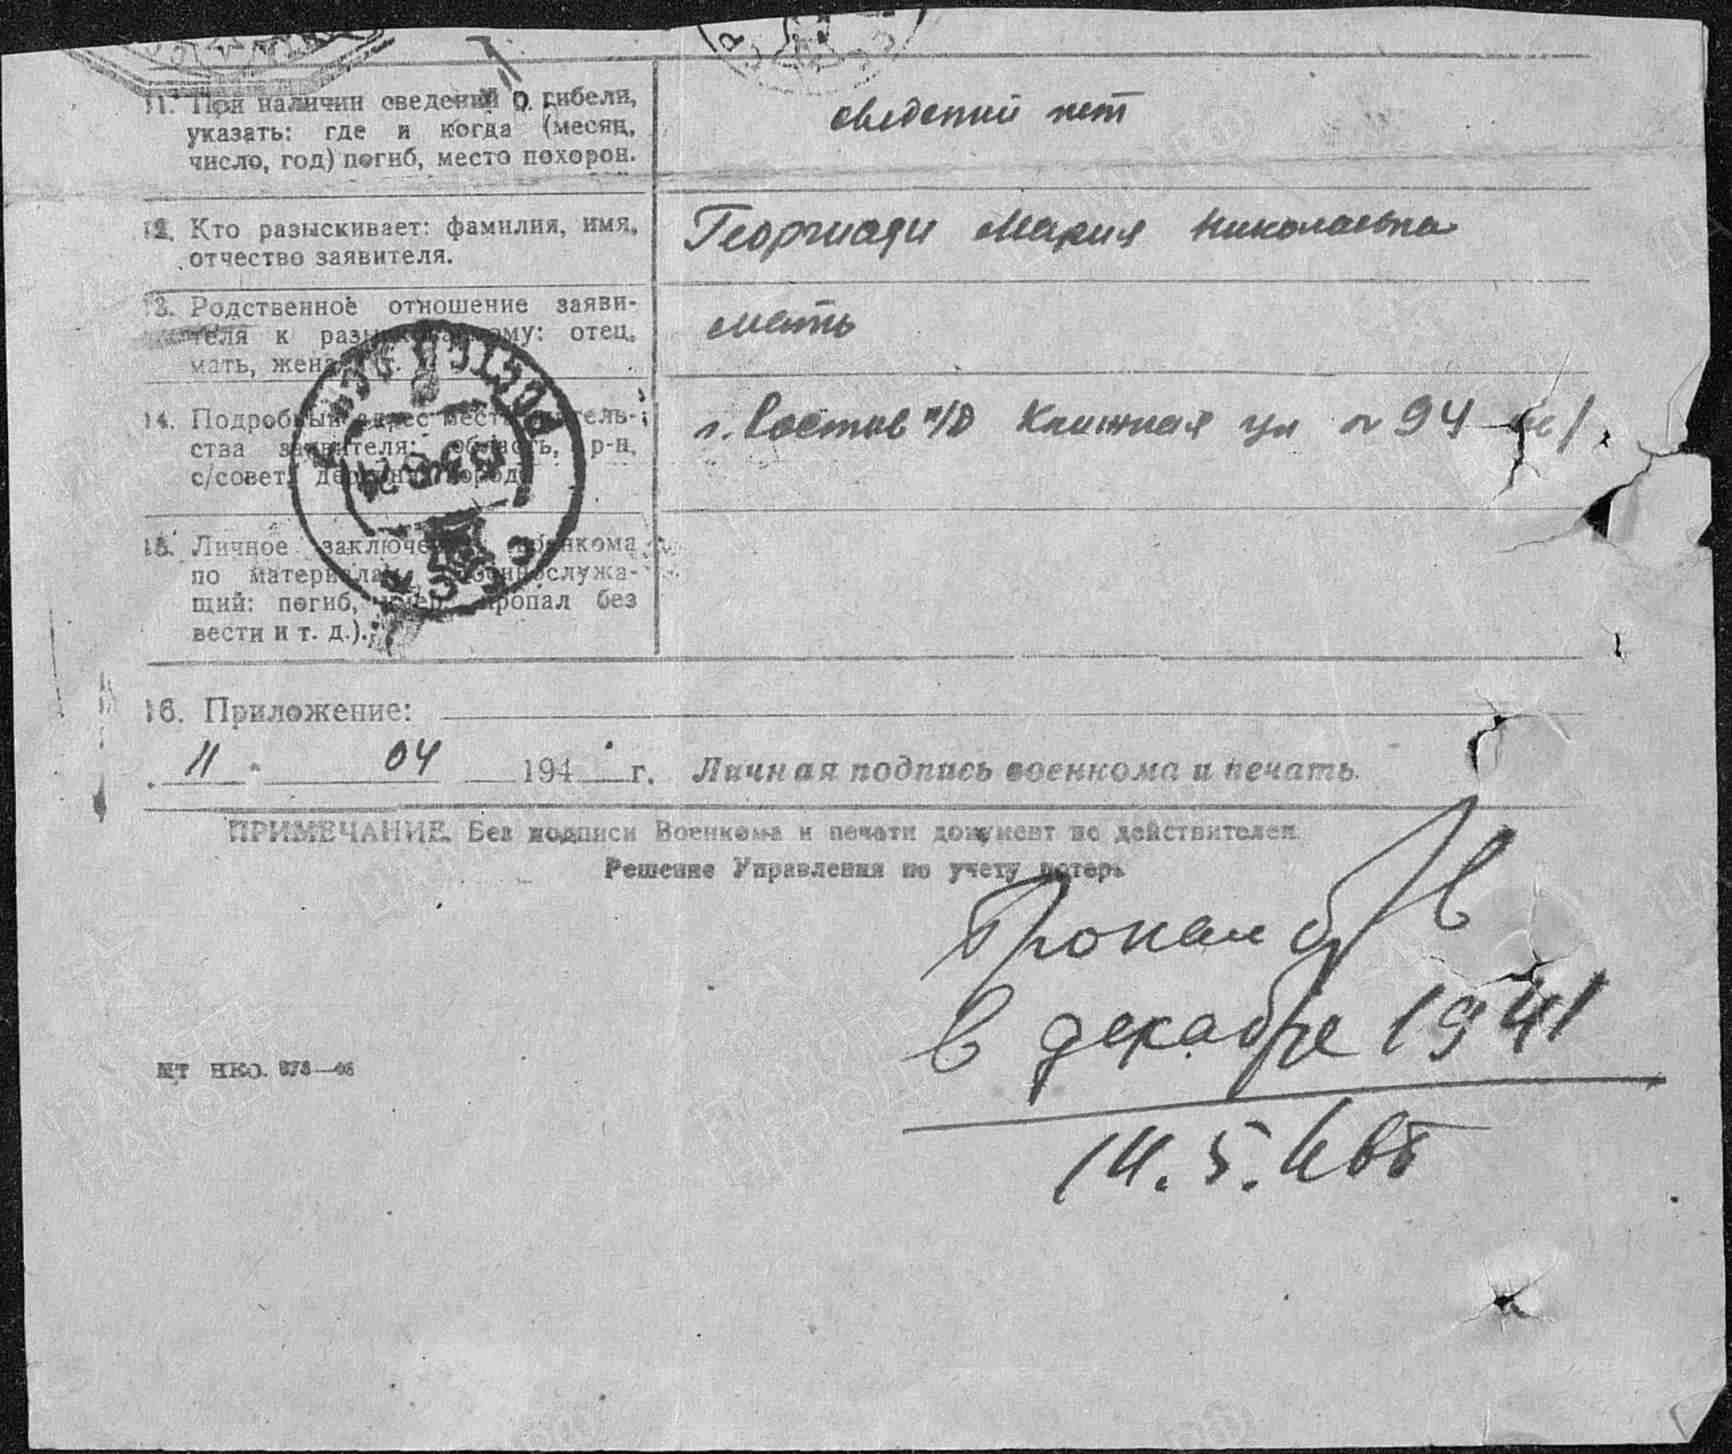 11. При наличии сведений о гибели,
указать: где и когда (месяц,
число, год) погиб, место похорон.
сведений нет
12. Кто разыскивает: фамилия, имя,
отчество заявителя.
Георгиади Мария Николаевна
13. Родственное отношение заяви-
теля к разыскиваемому: отец,
мать, жена
мать
14. Подробный адрес местожитель-
ства заявителя: область, р-н,
с/совет, деревня, город
г. Ростов н/Д Книжная ул № 94
15. Личное заключение военкома
по материалам военнослужа-
щий: погиб, умер, пропал без
вести и т. д.).
16. Приложение:
11 04 194 г. Личная подпись военкома и печать
ПРИМЕЧАНИЕ. Без подписи Военкома и печати документ не действителен
Решение Управления по учету потерь
Пропал б/в
в декабре 1941
14.5.
МТ НКО.
РОСТОВ
СССР